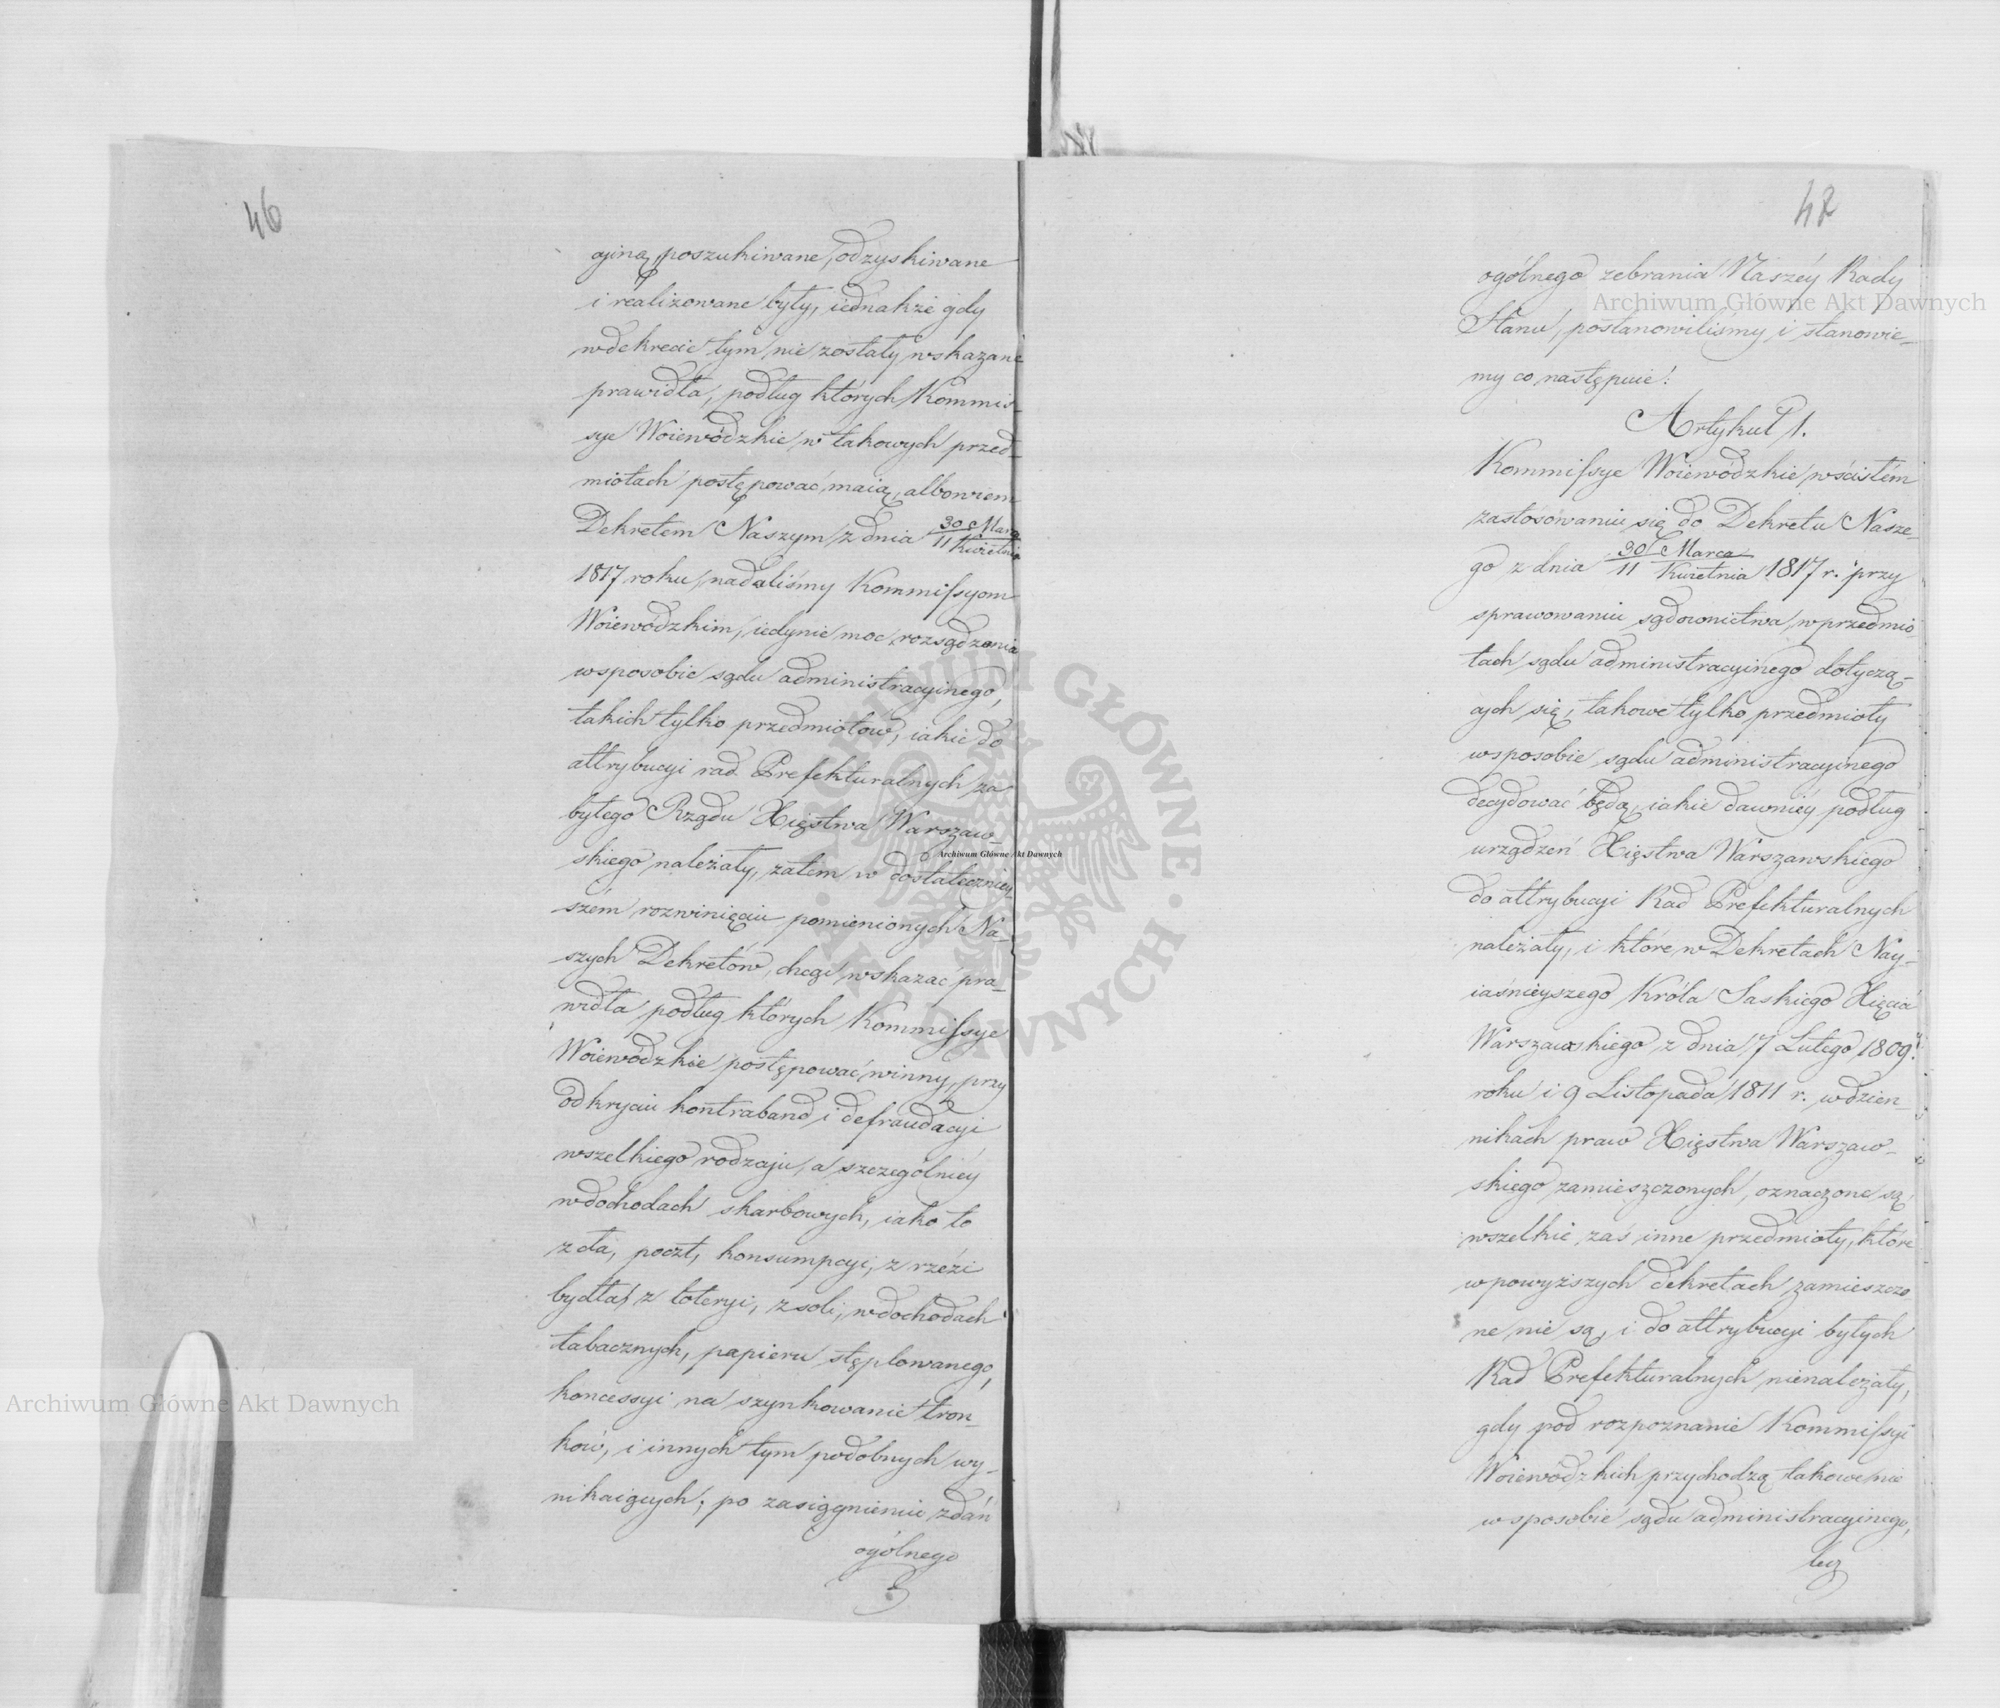 46
cyiną, poszukiwane, odzyskiwane
i realizowane były, iednakże gdy
w dekrecie tym nie zostały wskazane
prawidła, podług których Kommis-
sye Woiewódzkie w takowych przed-
miotach postępować maią, albowiem
Dekretem Naszym z dnia 30 Marca / 11 Kwietnia
1817 roku, nadaliśmy Kommissyom
Woiewódzkim, iedynie moc rozsądzania
wsposobie sądu administracyinego,
takich tylko przedmiotów, iakie do
attrybucyi rad Prefekturalnych za
byłego Rządu Xięstwa Warszaw-
skiego należały, zatem w dostateczniey-
szém rozwinięciu pomienionych Na-
szych Dekretów, chcąc wskazać pra-
widła podług których Kommissye
Woiewódzkie postępować winny, przy
odkryciu kontraband i defraudacyi
wszelkiego rodzaju, a szczególniéy
w dochodach skarbowych, iako to
z cła, poczt, konsumpcyi, z rzezi
bydła, z loteryi, z soli, w dochodach
tabacznych, papieru stęplowanego,
koncessyi na szynkowanie trun-
ków, i innych tym podobnych wy-
nikaiących; po zasiągnieniu zdań
ogólnego
47
ogólnego zebrania Naszéy Rady
Stanu, postanowiliśmy i stanowie-
my co następuie:
Artykuł 1.
Kommissye Woiewódzkie wścisłém
zastosowaniu się do Dekretu Nasze-
go z dnia 30 Marca / 11 Kwietnia 1817 r. przy
sprawowaniu sądownictwa, w przedmio-
tach sądu administracyinego dotyczą-
cych się, takowe tylko przedmioty
wsposobie sądu administracyinego
decydować będą, iakie dawniéy podług
urządzeń Xięstwa Warszawskiego
do attrybucyi Rad Prefekturalnych
należały, i które w Dekretach Nay-
iaśnieyszego Króla Saskiego Xięcia
Warszawskiego z dnia 7 Lutego 1809
roku i 9 Listopada 1811 r. w dzien-
nikach praw Xięstwa Warszaw-
skiego zamieszczonych, oznaczone są,
wszelkie zaś inne przedmioty, które
w powyższych dekretach zamieszczo-
ne nie są, i do attrybucyi byłych
Rad Prefekturalnych nienależały,
gdy pod rozpoznanie Kommissyi
Woiewódzkich przychodzą takowe nie
w sposobie sądu administracyinego,
lecz
Archiwum Główne Akt Dawnych
Archiwum Główne Akt Dawnych
Archiwum Główne Akt Dawnych
ARCHIWUM GŁÓWNE AKT DAWNYCH